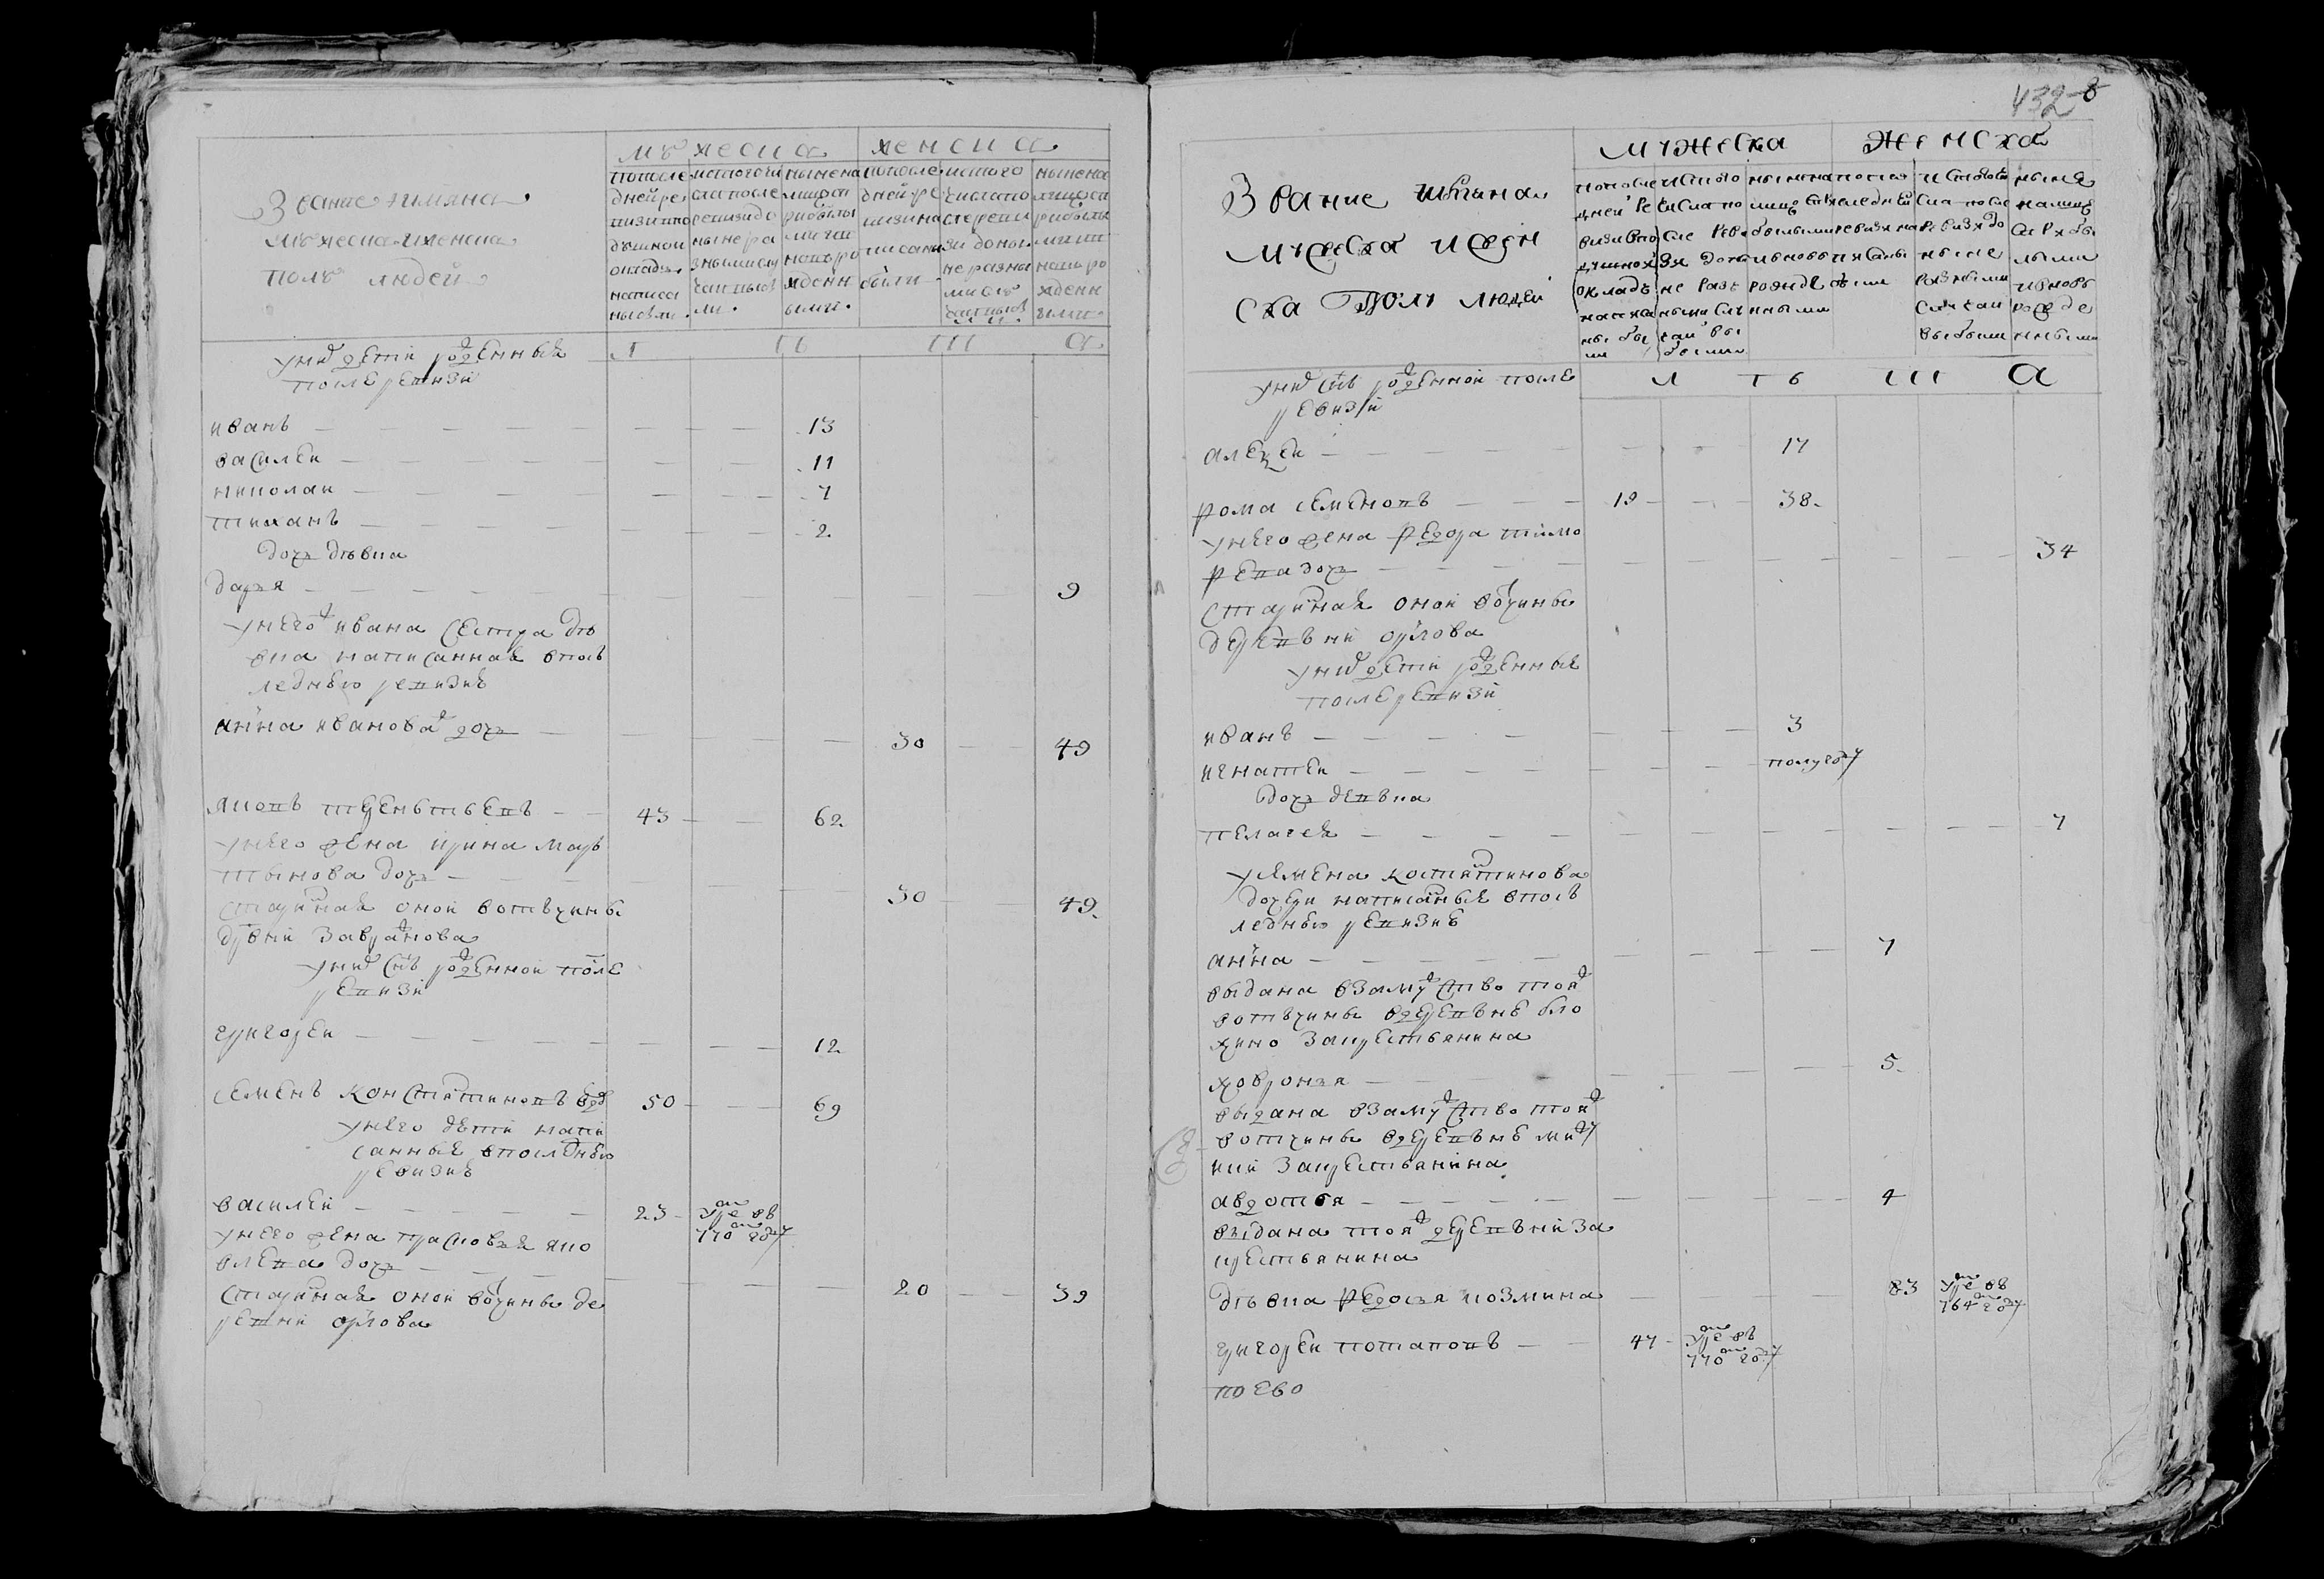 Звание и имяна
мужеска и женска
полу людей
мужеска женска
по последней ревизии в подушном окладе написаны были
ис того числа после ревизи до ныне разными случаи выбыли
ныне на лицо с прибылыми и вновь рожденными
по последней ревизии написаны были
ис того числа после ревизи до ныне разными случаи выбыли
ныне на лицо с прибылыми и вновь рожденными
л т ь ш а
у них дети рожденныя
после ревизи
иванъ — 13
василеи — 11
николаи — 7
тиханъ — 2
дочь дѣвка
дарья — 9
у него ж ивана сестра дѣ
вка написанная в пось
леднею ревизию
анна иванова дочь — 30 — 49
яковъ терентьевъ — 43 — 62
у него жена ирина мар
тынова дочь — 30 — 49
старинная оной вотчины
дрвни
у них снъ рожденной после
ревизи
григореи — 12
семенъ констянтиновъ вдов — 50 — 69
у него дети напи
санныя в последнею
ревизию
василеи — 23 — умре въ
770 году
у него жена прасковья яко
влева дочь — 20 — 39
старинная оной вотчины де
ревни орлова
432 8
Звание имяна
мужеска и жен
ска полу людей
мужеска женска
по последней ревизии в подушном окладе написаны были
ис того числа после ревизи до ныне разными случаи выбыли
ныне на лицо с прибылыми и вновь рожденными
по последней ревизии написаны были
ис того числа после ревизи до ныне разными случаи выбыли
ныне на лицо с прибылыми и вновь рожденными
л т ь ш а
у них снъ рожденной после
ревизи
алексеи — 17
фома семеновъ — 19 — 38
у него жена федора тимо
фева дочь — 34
старинная оной вотчины
деревни орлова
у них дети рожденныя
после ревизи
иванъ — 3
игнатеи — полугоду
дочь девъка
пелагея — 7
у семена костянтинова
дочери написаныя в пось
леднею ревизию
анна — 7
выдана в замужство тояж
вотчины в деревню
за крестьянина
ховронья — 5
выдана в замужство тояж
вотчины в деревню
за крестьянина
авдотья — 4
выдана тояж деревни за
крестьянина
дѣвка федосья козмина — 83 — умре въ
764 году
григореи потаповъ — 47 — умре въ
770 году
по ево